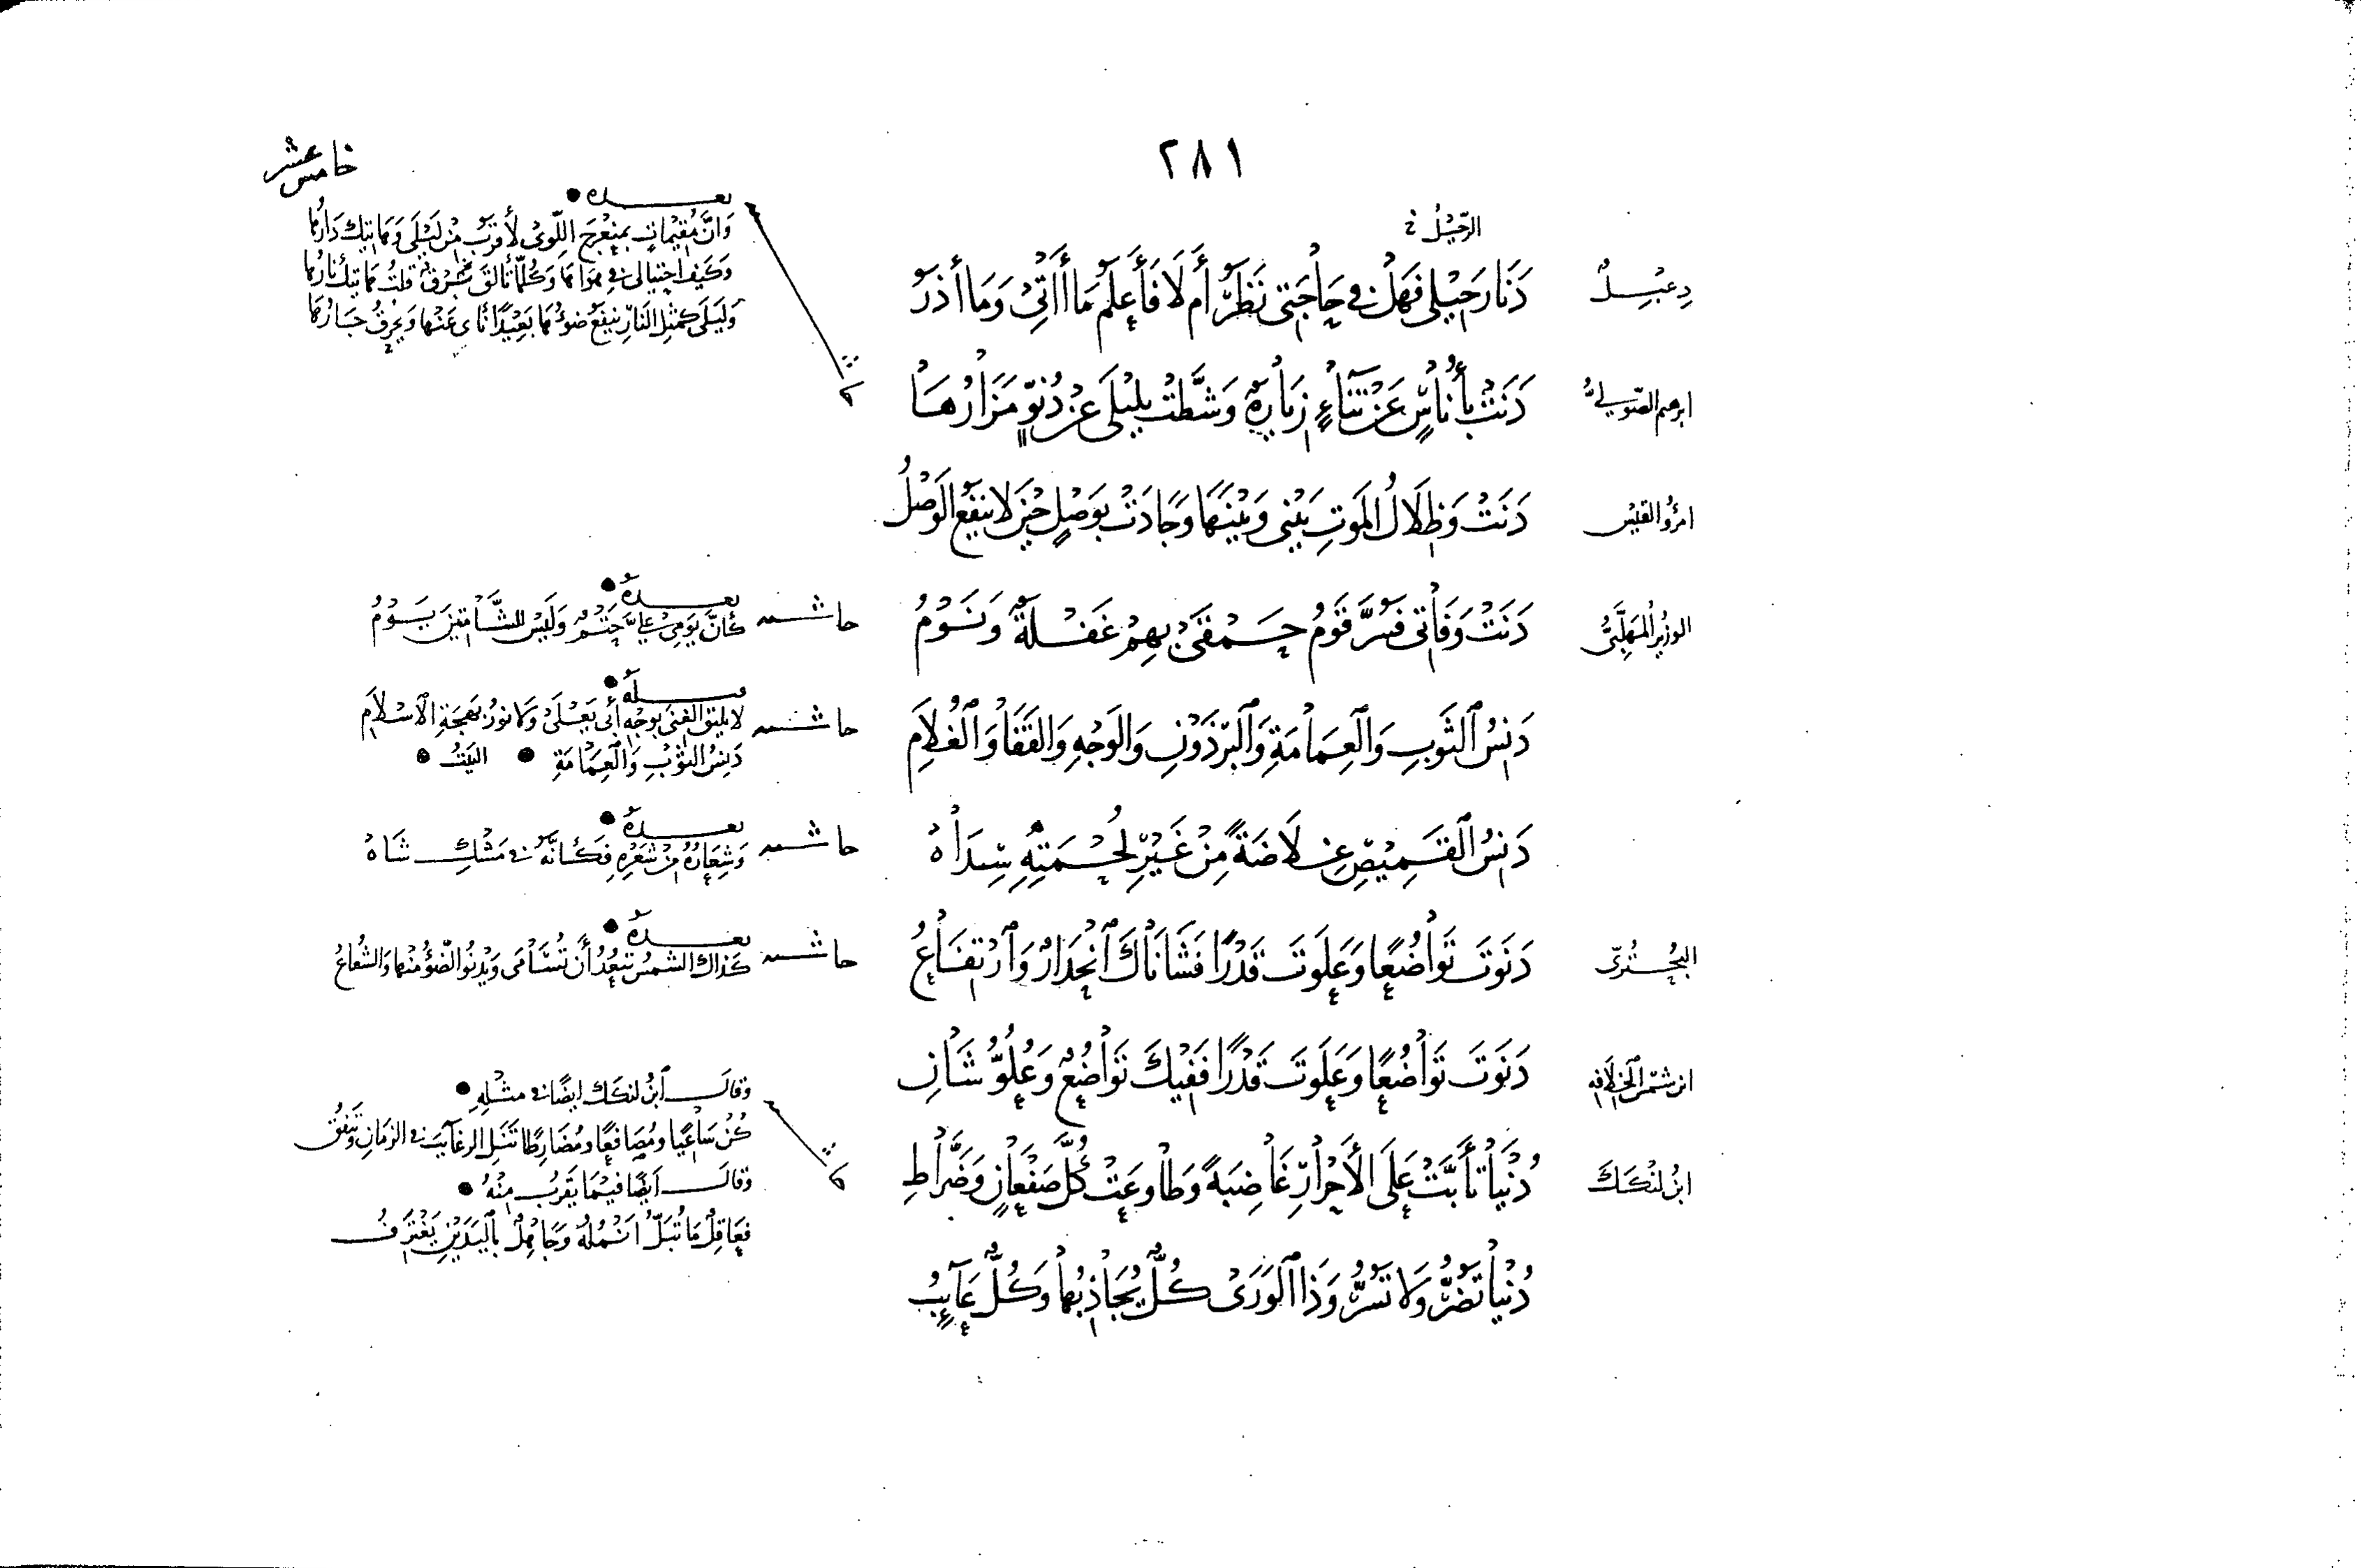 ٢٨١
خامس عشر
الرَّحِيلُ
دِعْبِلٌ
دَنَا رَحِيْلِي فَهَلْ فِي حَاجَتِي نَظَرٌ أَمْ لَا فَأَعْلَمَ مَا أَأْتِيْ وَمَا أَذَرُ
بعده
وَإِنَّ مُقِيْمَاتٍ بِمُنْعَرَجِ اللِّوَى لَأَقْرَبُ مِنْ لَيْلَى وَهَاتِيْكَ دَارُهَا
وَكَيْفَ احْتِيَالِي فِي هَوَاهَا وَكُلَّمَا تَأَلَّقَ بَرْقٌ قُلْتُ هَاتِيْكَ نَارُهَا
وَلَيْلَى كَمِثْلِ النَّارِ يَنْفَعُ ضَوْءُهَا بَعِيْدًا نَأَى عَنْهَا وَيُحْرَقُ جَارُهَا
ابرهيم الصّوليُّ
دَنَتْ بِأُنَاسٍ عَنْ تَنَاءٍ زِيَارَةٌ وَشَطَّتْ بِلَيْلَى عَنْ دُنُوٍّ مَزَارُهَا
امرؤ القيس
دَنَتْ وَظِلَالُ الْمَوتِ بَيْنِي وَبَيْنَهَا وَجَادَتْ بِوَصْلٍ حِيْنَ لَا يَنْفَعُ الْوَصْلُ
الوزيرُ المُهَلَّبِيُّ
دَنَتْ وَفَاتِي فَسُرَّ قَومُ حَمْقَىْ بِهِمْ غَفْلَةٌ وَنَوْمُ
حاشية
بعده
كَأَنَّ يَوْمِيْ عَلَيَّ حَتْمٌ وَلَيْسَ لِلشَّامِتِيْنَ يَوْمُ
دَنِسُ الثَّوبِ وَالْعِمَامَةِ وَالْبِرْذَوْنِ وَالْوَجْهِ وَالْقَفَا وَالْغُلَامِ
حاشية
قبله
لَا يَلِيْقُ الْغِنَى بِوَجْهِ أَبِي يَعْلَى وَلَا نُورُ بَهْجَةِ الْإِسْلَامِ
دَنِسُ الثَّوْبِ وَالْعِمَامَةِ البَيْتُ
دَنِسُ الْقَمِيْصِ غِلَاضَةً مِنْ غَيْرِ لُحْمَتِهِ سِدَاهُ
حاشية
بعده
وَشِعَارُهُ مِنْ شَعْرِهِ فَكَأَنَّهُ فِي مَسْكِ شَاهْ
البُحْتُريّ
دَنَوتَ تَوَاضُعًا وَعَلَوتَ قَدْرًا فَشَانَاكَ انْحِدَارٌ وَارْتِفَاعُ
حاشية
بعده
كَذَاكَ الشَّمْسُ تَبْعُدُ أَنْ تُسَامَى وَيَدْنُو الضَّوْءُ مِنْهَا وَالشُّعَاعُ
ابن شمس الخلافه
دَنَوتَ تَوَاضُعًا وَعَلَوتَ قَدْرًا فَفِيْكَ تَوَاضُعٌ وَعُلُوُّ شَانِ
ابن لنكك
دُنْيَا تَأَبَّتْ عَلَى الْأَحْرَارِ غَاضِبَةً وَطَاوَعَتْ كُلَّ صَفْعَانٍ وَضَرَّاطِ
وقال ابن لنكك ايضًا في مثلِهِ
كُنْ سَاعِيًا وَمُصَافِعًا وَمُضَارِطًا تَنَلِ الرَّغَائِبَ فِي الزَّمَانِ وَتَنْفُقُ
وقال ايضًا فيما يقرب منه
فَعَاقِلٌ مَا تُبَلُّ أَنْمُلُهُ وَجَاهِلٌ بِالْيَدَيْنِ يَغْتَرِفُ
دُنْيَا تَضُرُّ وَلَا تَسُرُّ وَذَا الْوَرَى كُلٌّ يُجَاذِبُهَا وَكُلٌّ عَائِبُ